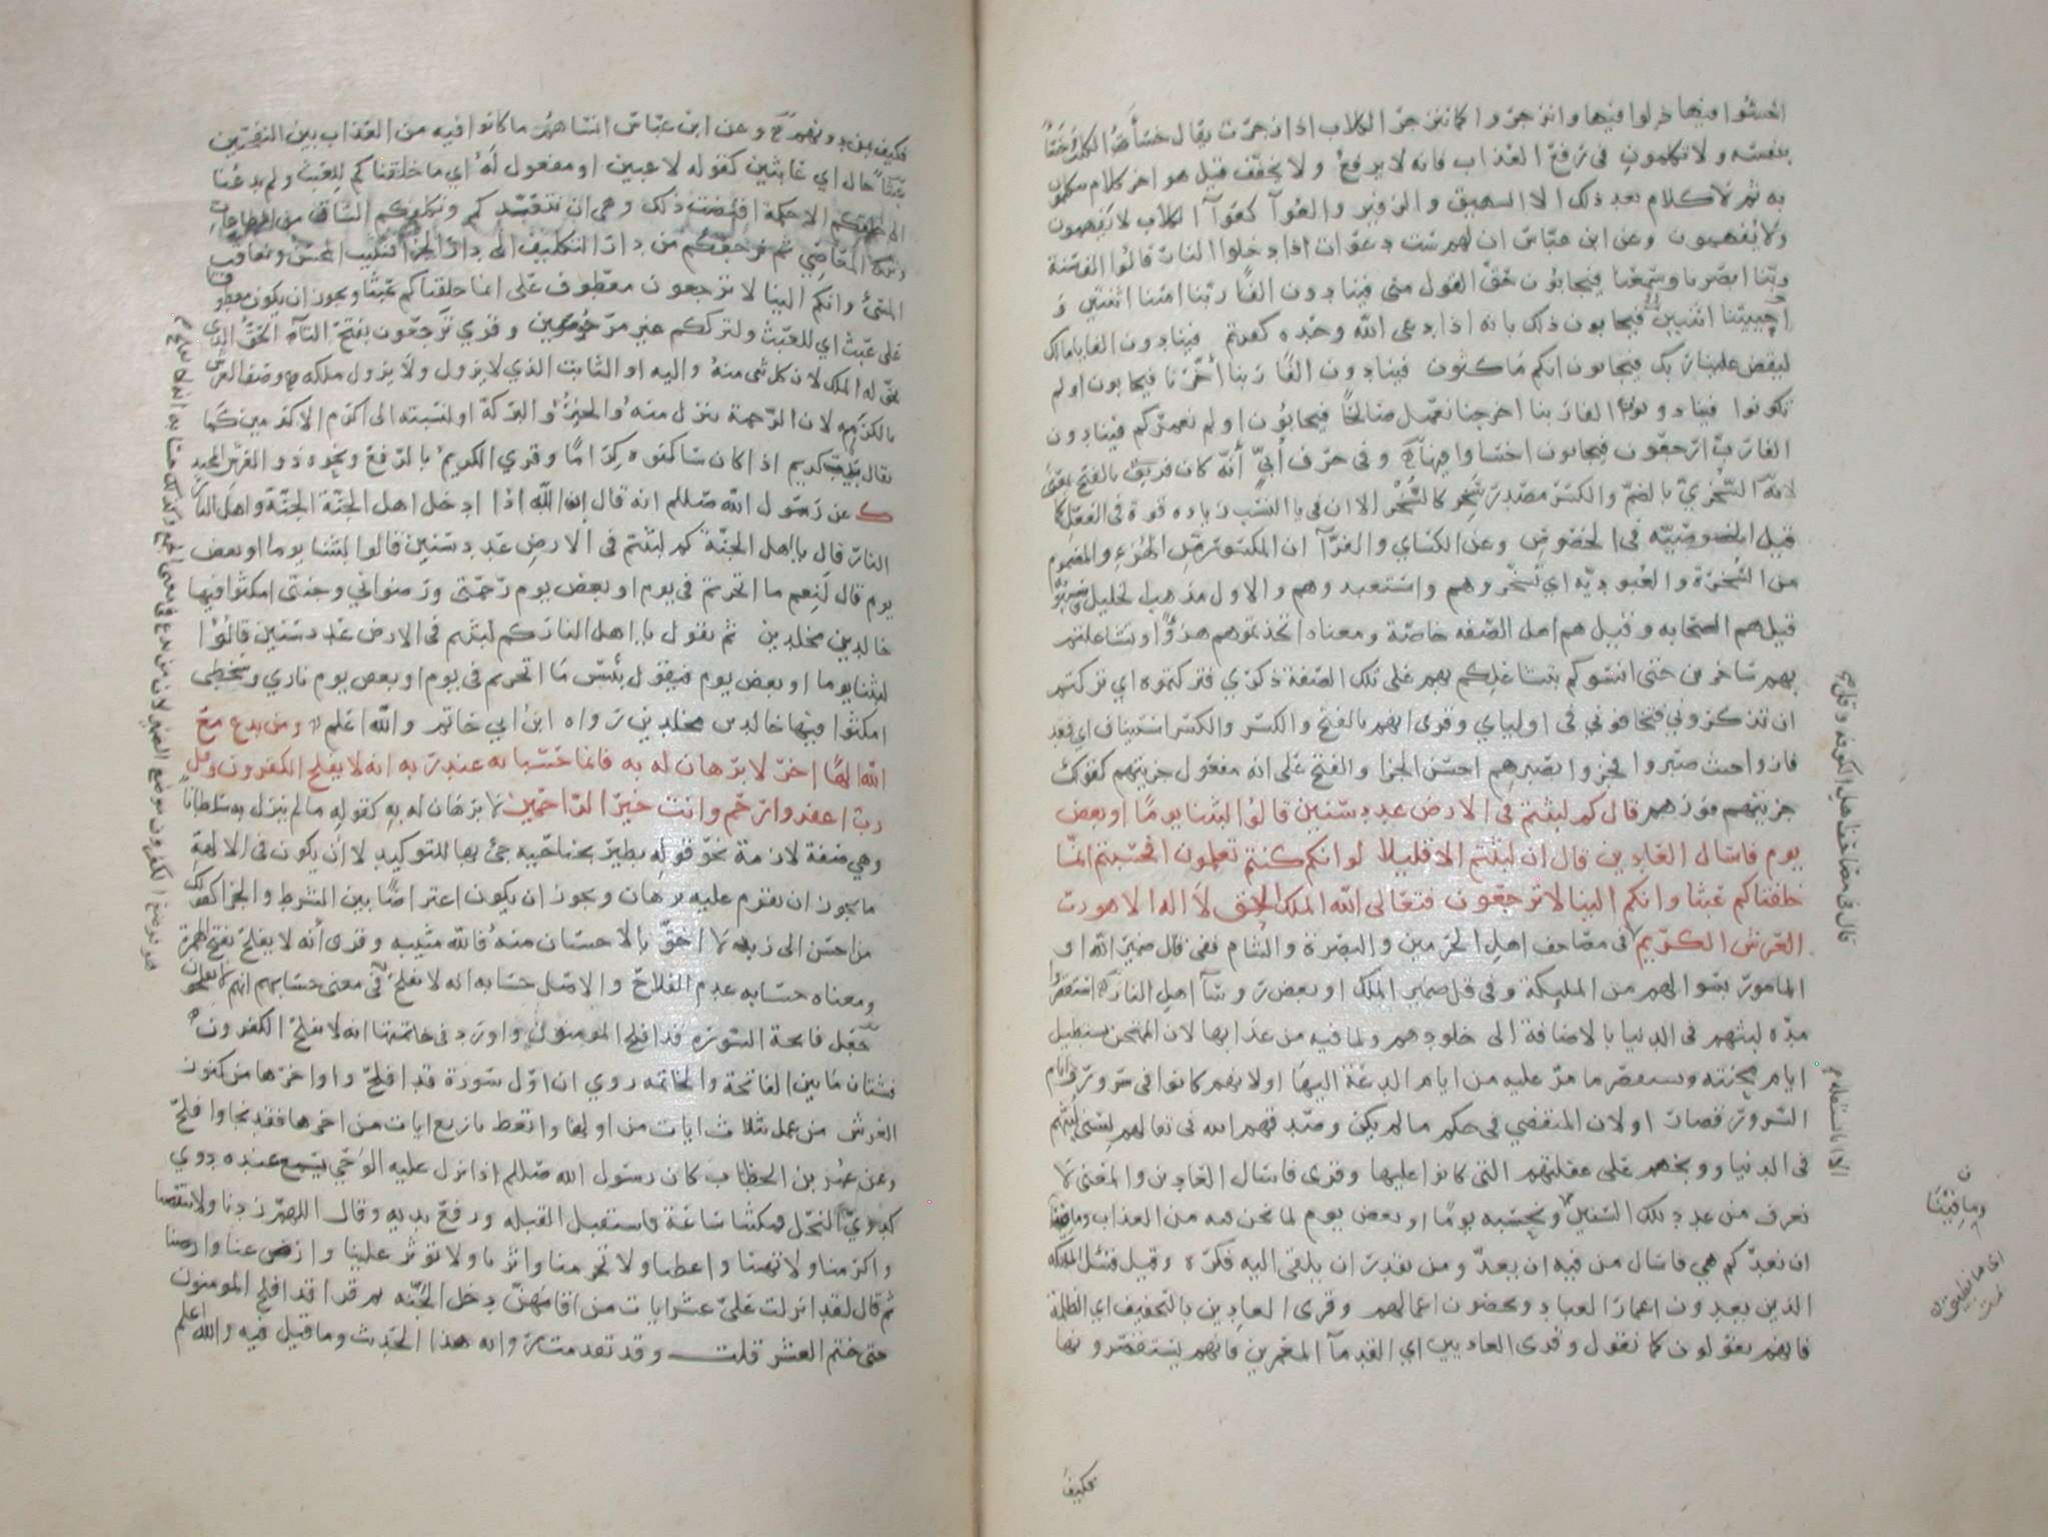 اخسئوا فيها ذلوا فيها وانزجروا كما تنزجر الكلاب اذا زجرت يقال خسأ الكلب وخسأ
بنفسه ولا تكلمون في رفع العذاب فانه لا يرفع ولا يخفف قيل هو اخر كلام يتكلمون
به ثم لا كلام بعد ذلك الا الشهيق والزفير والعوآ كعوآ الكلاب لا يفهمون
ولا يُفهمون وعن ابن عباس ان لهم ست دعوات اذا دخلوا النار قالوا الف سنة
ربنا ابصرنا وسمعنا فيجابون حق القول مني فينادون الفا ربنا امتنا اثنتين و
احييتنا اثنتين فيجابون ذلك بانه اذا دعي الله وحده كفرتم فينادون الفا يا مالك
ليقض علينا ربك فيجابون انكم ماكثون فينادون الفا ربنا اخرنا فيجابون اولم
تكونوا فينادون الفا ربنا اخرجنا نعمل صالحا فيجابون اولم نعمركم فينادون
الفا رب ارجعون فيجابون اخسئوا فيها وفي حرف أبيّ أنه كان فريق بالفتح بمعنى
لانه السخري بالضم والكسر مصدر سخر كالسخر الا ان في يا النسب زياده قوة في الفعل كما
قيل الخصوصيه في الخصوص وعن الكساي والفرآ ان المكسور من الهزء والمضموم
من السخرة والعبوديه اي تسخروهم واستعبدوهم والاول مذهب الخليل وسيبويه
قيل هم الصحابه وقيل هم اهل الصفه خاصة ومعناه اتخذتموهم هزوًا وتشاغلتم
بهم ساخرين حتى انسوكم بتشاغلكم بهم على تلك الصفة ذكري فتركتموه اي تركتم
ان تذكروني فتخافوني في اولياي وقرى انهم بالفتح والكسر والكسر استيناف اي قد
فازوا حيث صبروا فجزوا بصبرهم احسن الجزا والفتح على انه مفعول جزيتهم كقولك
جزيتهم فوزهم قال كم لبثتم في الارض عدد سنين قالوا لبثنا يومًا او بعض
يوم فاسال العادين قال ان لبثتم الا قليلا لو انكم كنتم تعلمون افحسبتم انما
خلقناكم عبثا وانكم الينا لا ترجعون فتعالى الله الملك الحق لا اله الا هو رب
العرش الكريم في مصاحف اهل الحرمين والبصرة والشام ففي قال ضمير الله او
المامور بسوالهم من المليكة وفي قل ضمير الملك او بعض روسآ اهل النار استقصروا
مده لبثهم في الدنيا بالاضافة الى خلودهم ولما فيه من عذابها لان الممتحن يستطيل
ايام محنته ويستقصر ما مر عليه من ايام الدعة اليها او لانهم كانوا في سرور وايام
السرور قصار او لان المنقضي في حكم ما لم يكن وصدقهم الله في تقالهم لسني لبثهم
في الدنيا ووبخهم على غفلتهم التي كانوا عليها وقرى فاسال العادين والمعنى لا
نعرف من عدد تلك السنين ونحسبه يومًا او بعض يوم لما نحن فيه من العذاب وما فينا
ان نعد كم هي فاسال من فيه ان يعد ومن يقدر ان يلقى اليه فكره وقيل فسئل المليكه
الذين يعدون اعمار العباد ويحصون اعمالهم وقرى العادين بالتخفيف اي الظلمة
فانهم يقولون كما نقول وقرى العاديين اي القدمآ المعمرين فانهم يستقصرونها
فكيف
قال في مصاحف اهل الكوفه وقل
وما فينا
فكيف بمن دونهم وعن ابن عباس انساهم ما كانوا فيه من العذاب بين النفختين
عبثًا حال اي عابثين كقوله لاعبين او مفعول له اي ما خلقناكم للعبث ولم يدعنا
الى خلقكم الا حكمة اقتضت ذلك وهي ان نتعبدكم ونكلفكم المشاق من الطاعات
وترك المعاصي ثم نرجعكم من دار التكليف الى دار الجزا فنثيب المحسن ونعاقب
المسئ وانكم الينا لا ترجعون معطوف على انما خلقناكم عبثا ويجوز ان يكون معطوفا
على عبثا اي للعبث ولترككم غير مرجوعين وقرى ترجعون بفتح التآء الحق الذي
يحق له الملك لان كل شى منه واليه او الثابت الذي لا يزول ولا يزول ملكه وصف العرش
بالكرم لان الرحمة تنزل منه والخير والبركة او لنسبته الى اكرم الاكرمين كما
يقال بيت كريم اذا كان ساكنوه كرامًا وقرى الكريم بالرفع ونحوه ذو العرش المجيد
ك عن رسول الله صللم انه قال ان الله اذا ادخل اهل الجنة الجنة واهل النار
النار قال يا اهل الجنة كم لبثتم في الارض عدد سنين قالوا لبثنا يوما او بعض
يوم قال لنعم ما اتجرتم في يوم او بعض يوم رحمتي ورضواني وجنتي امكثوا فيها
خالدين مخلدين ثم يقول يا اهل النار كم لبثتم في الارض عدد سنين قالوا
لبثنا يوما او بعض يوم فيقول بئس ما اتجرتم في يوم او بعض يوم ناري وسخطي
امكثوا فيها خالدين مخلدين رواه ابن ابي حاتم والله اعلم ومن يدع مع
الله الها اخر لا برهان له به فانما حسابه عند ربه انه لا يفلح الكفرون وقل
رب اغفر وارحم وانت خير الراحمين لا برهان له به كقوله ما لم ينزل به سلطانًا
وهي صفة لازمة نحو قوله يطير بجناحيه جئ بها للتوكيد لا ان يكون في الالهة
ما يجوز ان يقوم عليه برهان ويجوز ان يكون اعتراضًا بين الشرط والجزا كقولك
من احسن الى زيد لا احق بالاحسان منه فالله مثيبه وقرى أنه لا يفلح بفتح الهمزة
ومعناه حسابه عدم الفلاح والاصل حسابه انه لا يفلح في معنى حسابهم انهم لا يفلحون
جعل فاتحة السورة قد افلح المومنون واورد في خاتمتها انه لا يفلح الكفرون
فشتان ما بين الفاتحة والخاتمه روي ان اول سورة قد افلح واواخرها من كنوز
العرش من عمل بثلاث ايات من اولها واتعظ باربع ايات من اخرها فقد نجا وافلح
وعن عمر بن الخطاب كان رسول الله صللم اذا نزل عليه الوحي يسمع عنده دوي
كدوي النحل فمكثنا ساعة فاستقبل القبله ورفع يديه وقال اللهم زدنا ولا تنقصنا
واكرمنا ولا تهنا واعطنا ولا تحرمنا واثرنا ولا توثر علينا وارض عنا وارضنا
ثم قال لقد انزلت علي عشر ايات من اقامهن دخل الجنه ثم قرا قد افلح المومنون
حتى ختم العشر قلت وقد تقدمت روايه هذا الحديث وما قيل فيه والله اعلم